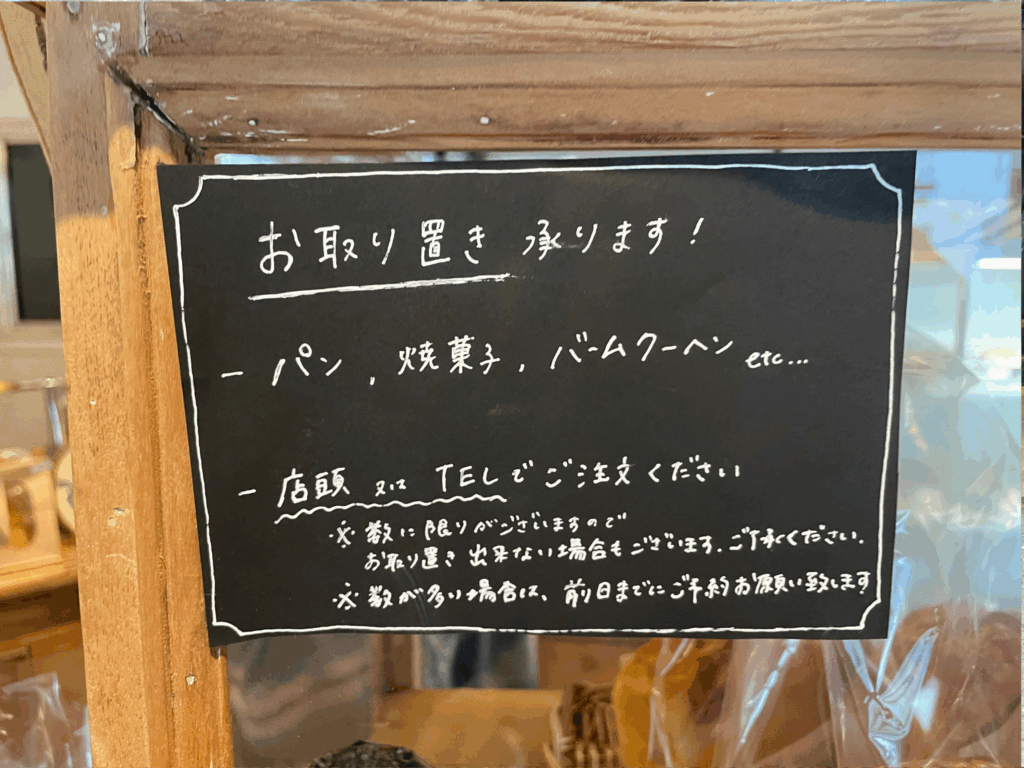 お取り置き 承ります!
- パン, 焼菓子, バームクーヘン etc...
- 店頭 又は TELでご注文ください
※ 数に限りがございますので
お取り置き出来ない場合もございます. ご了承ください.
※ 数が多い場合は、前日までにご予約お願い致します